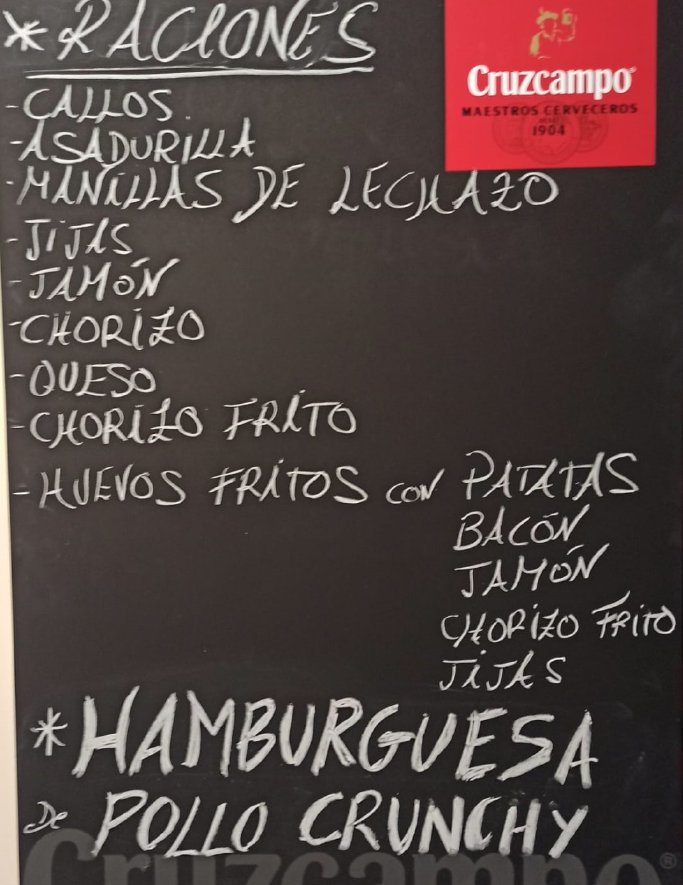 * RACIONES
Cruzcampo
MAESTROS CERVECEROS
1904
- CALLOS.
- ASADURILLA
- MANILLAS DE LECHAZO
- JIJAS
- JAMÓN
- CHORIZO
- QUESO
- CHORIZO FRITO
- HUEVOS FRITOS CON PATATAS
BACÓN
JAMÓN
CHORIZO FRITO
JIJAS
* HAMBURGUESA
de POLLO CRUNCHY
Cruzcampo®